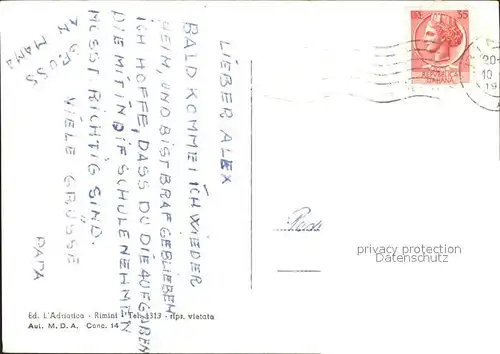 LIEBER ALEX
BALD KOMME ICH WIEDER
HEIM, UND BIST BRAF GEBLIEBEN
ICH HOFFE, DASS DU DIE AUFGABEN
DIE MIT IN DIE SCHULE NEHMEN
MUSST RICHTIG SIND.
VIELE GRÜSSE
PAPA
MAMI
35
REPVBBLICA
ITALIANA
20-
10
19
privacy protection
Datenschutz
Ed. L'Adriatica - Rimini - Tel. 4313 - rips. vietata
Aut. M. D. A. Conc. 14